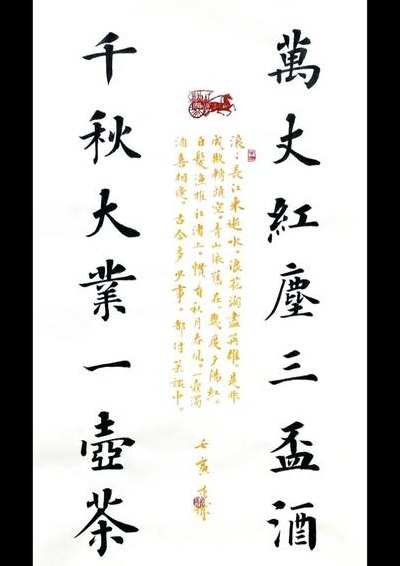 萬丈紅塵三盃酒
滾々長江東逝水。浪花淘盡英雄。是非
成敗轉頭空。青山依舊在。幾度夕陽紅。
白髮漁樵江渚上。慣看秋月春風。一壺濁
酒喜相逢。古今多少事。都付笑談中。
壬寅
千秋大業一壺茶